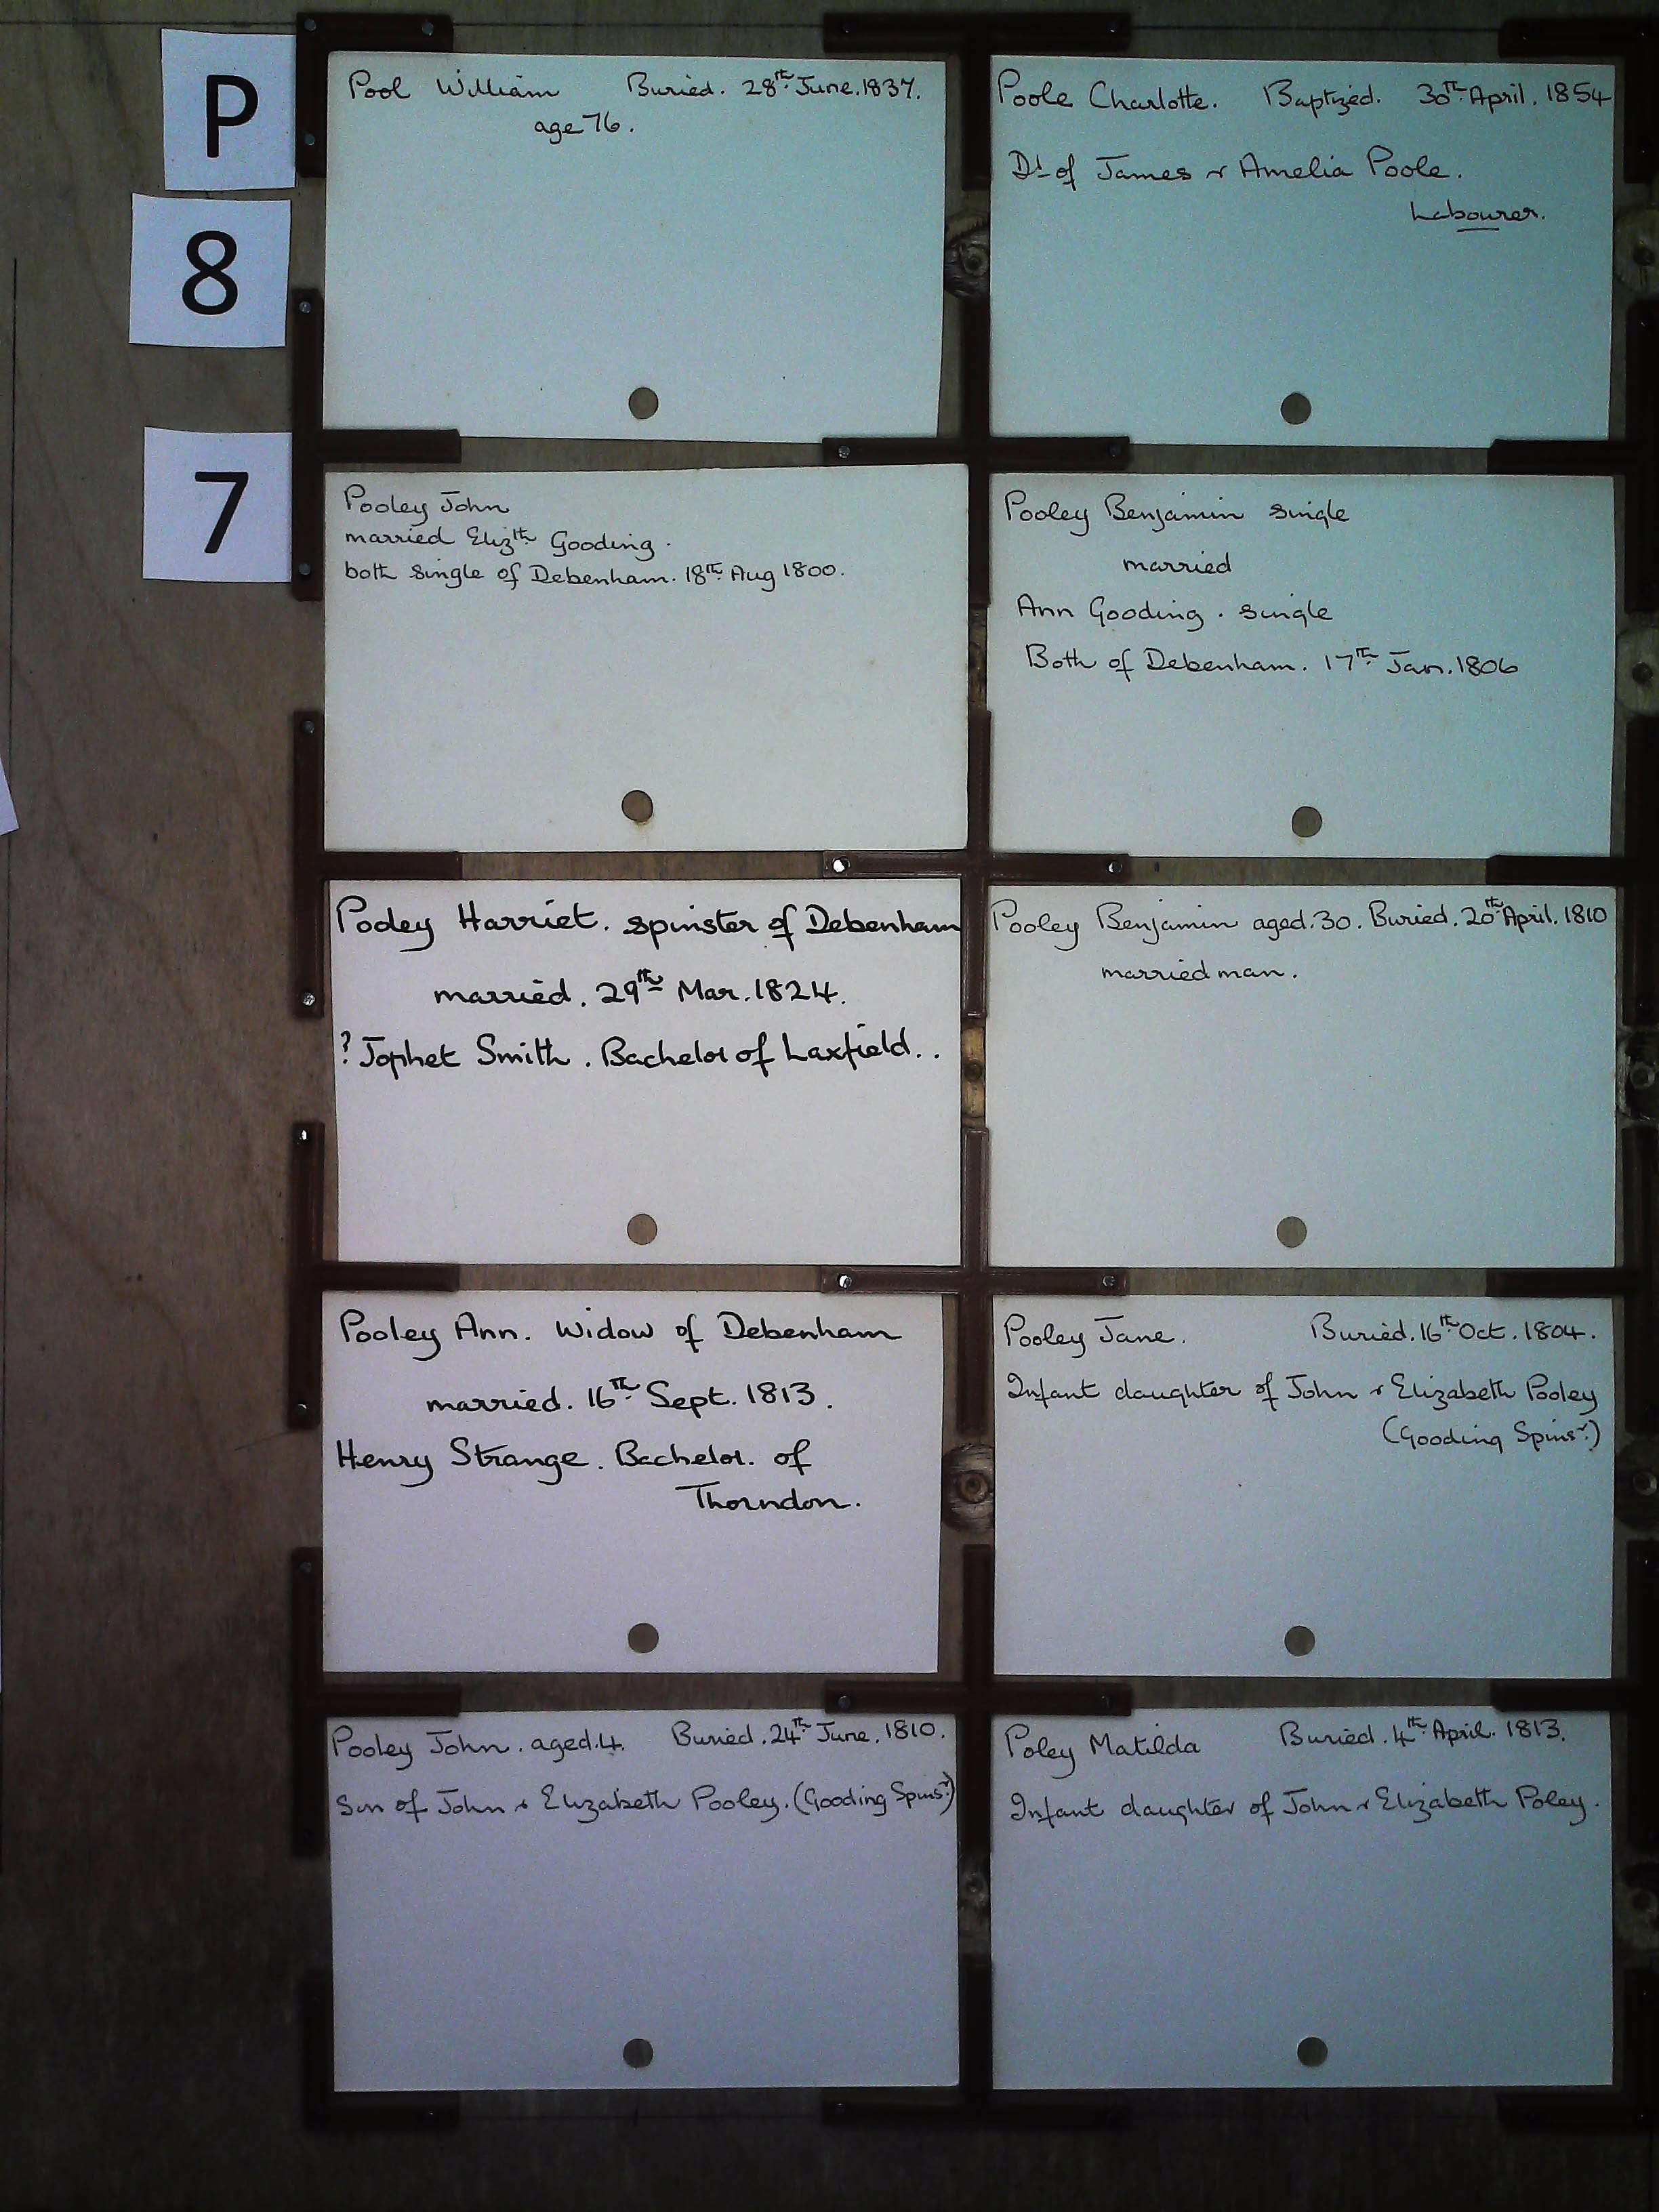 P
8
7
Pool William Buried. 28th June. 1837.
age 76.
Poole Charlotte. Baptized. 30th April. 1854
Dt of James & Amelia Poole.
Labourer.
Pooley John
married Elizth Gooding.
both single of Debenham. 18th Aug 1800.
Pooley Benjamin single
married
Ann Gooding. single
Both of Debenham. 17th Jan. 1806
Pooley Harriet. spinster of Debenham
married. 29th Mar. 1824.
? Jophet Smith. Bachelor of Laxfield..
Pooley Benjamin aged. 30. Buried. 20th April. 1810
married man.
Pooley Ann. Widow of Debenham
married. 16th Sept. 1813.
Henry Strange. Bachelor. of
Thorndon.
Pooley Jane. Buried. 16th Oct. 1804.
Infant daughter of John & Elizabeth Pooley
(Gooding Spinsr.)
Pooley John. aged. 4. Buried. 24th June. 1810.
Son of John & Elizabeth Pooley. (Gooding Spinsr.)
Poley Matilda Buried. 4th April. 1813.
Infant daughter of John & Elizabeth Poley.